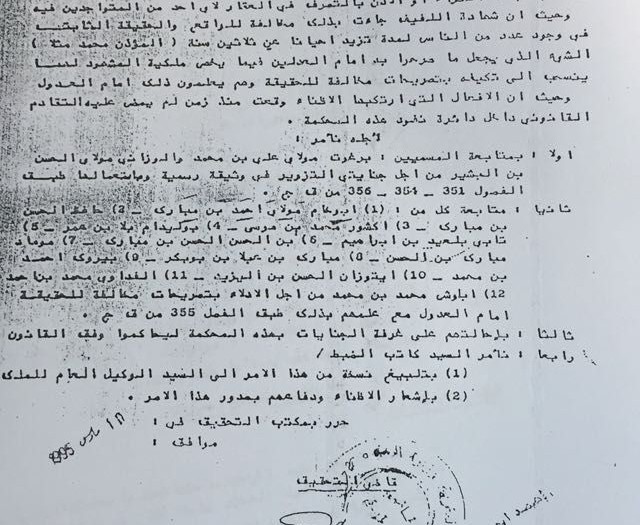 أو الاذن بالتصرف في العقار لاي احد من المتواجدين فيه
وحيث ان شهادة اللفيف جاءت بذلك مخالفة للواقع والحقيقة الثابتة
في وجود عدد من الناس لمدة تزيد احيانا عن ثلاثين سنة ( المؤذن محمد مثلا )
الشيء الذي يجعل ما صرحوا به امام العدلين فيما يخص ملكية المشهود لهما
ينسب الى تكييف بتصريحات مخالفة للحقيقة وهم يعلمون ذلك امام العدول
وحيث ان الافعال التي ارتكبها الاظناء وقعت منذ زمن لم يمض عليه التقادم
القانوني داخل دائرة نفوذ هذه المحكمة .
لاجله نأمر :
اولا : بمتابعة المسميين : برغوت مولاي علي بن محمد والوزاني مولاي الحسن
بن البشير من اجل جنايتي التزوير في وثيقة رسمية وباستعمالها طبق
الفصول 351 – 354 – 356 من ق ج .
ثانيا : متابعة كل من : (1) ابرهام مولاي احمد بن مبارك – 2) حافظ الحسن
بن مبارك – 3) اكشور محمد بن موسى – 4) بوليدام بلا بن عمر – 5)
تابي بلعيد بن ابراهيم – 6) بن الحسن الحسن بن مبارك – 7) موماد
مبارك بن الحسن – 8) مبارك بن علا بن بوبكر – 9) بيروك احمد
بن محمد – 10) ايتوزان الحسن بن اليزيد – 11) الغداوي محمد بن احمد
12) اباوش محمد بن محمد من اجل الادلاء بتصريحات مخالفة للحقيقة
امام العدول مع علمهم بذلك طبق الفصل 355 من ق ج .
ثالثا : بإحالتهم على غرفة الجنايات بهذه المحكمة ليحاكموا وفق القانون
رابعا : نأمر السيد كاتب الضبط /
(1) بتبليغ نسخة من هذا الامر الى السيد الوكيل العام للملك
(2) بإشعار الاظناء ودفاعهم بصدور هذا الامر .
حرر بمكتب التحقيق في :
موافق :
18 مارس 1995
قاضي التحقيق